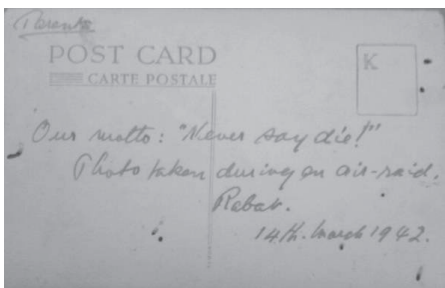 POST CARD
CARTE POSTALE
K
Our motto: "Never say die!"
Photo taken during an air-raid.
Rabat.
14th. March 1942.